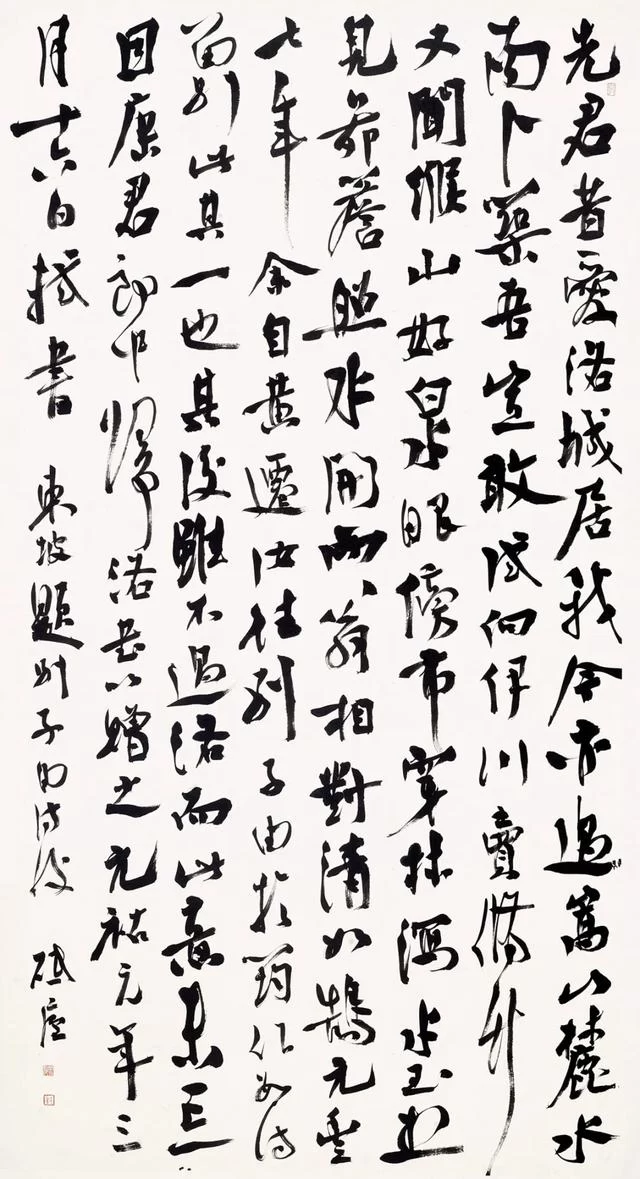 先君昔愛洛城居我今亦過嵩山麓水
南卜築吾豈敢試向伊川賣脩竹
又聞緱山好泉眼傍市穿林瀉冰玉想
見茅簷照水開兩翁相對清如鵠元豐
七年余自黃遷汝往別子由於筠作數詩
留別此其一也其後雖不過洛而此意未忘
因康君郎中歸洛書以贈之元祐元年三
月十六日軾書 東坡題別子由詩後